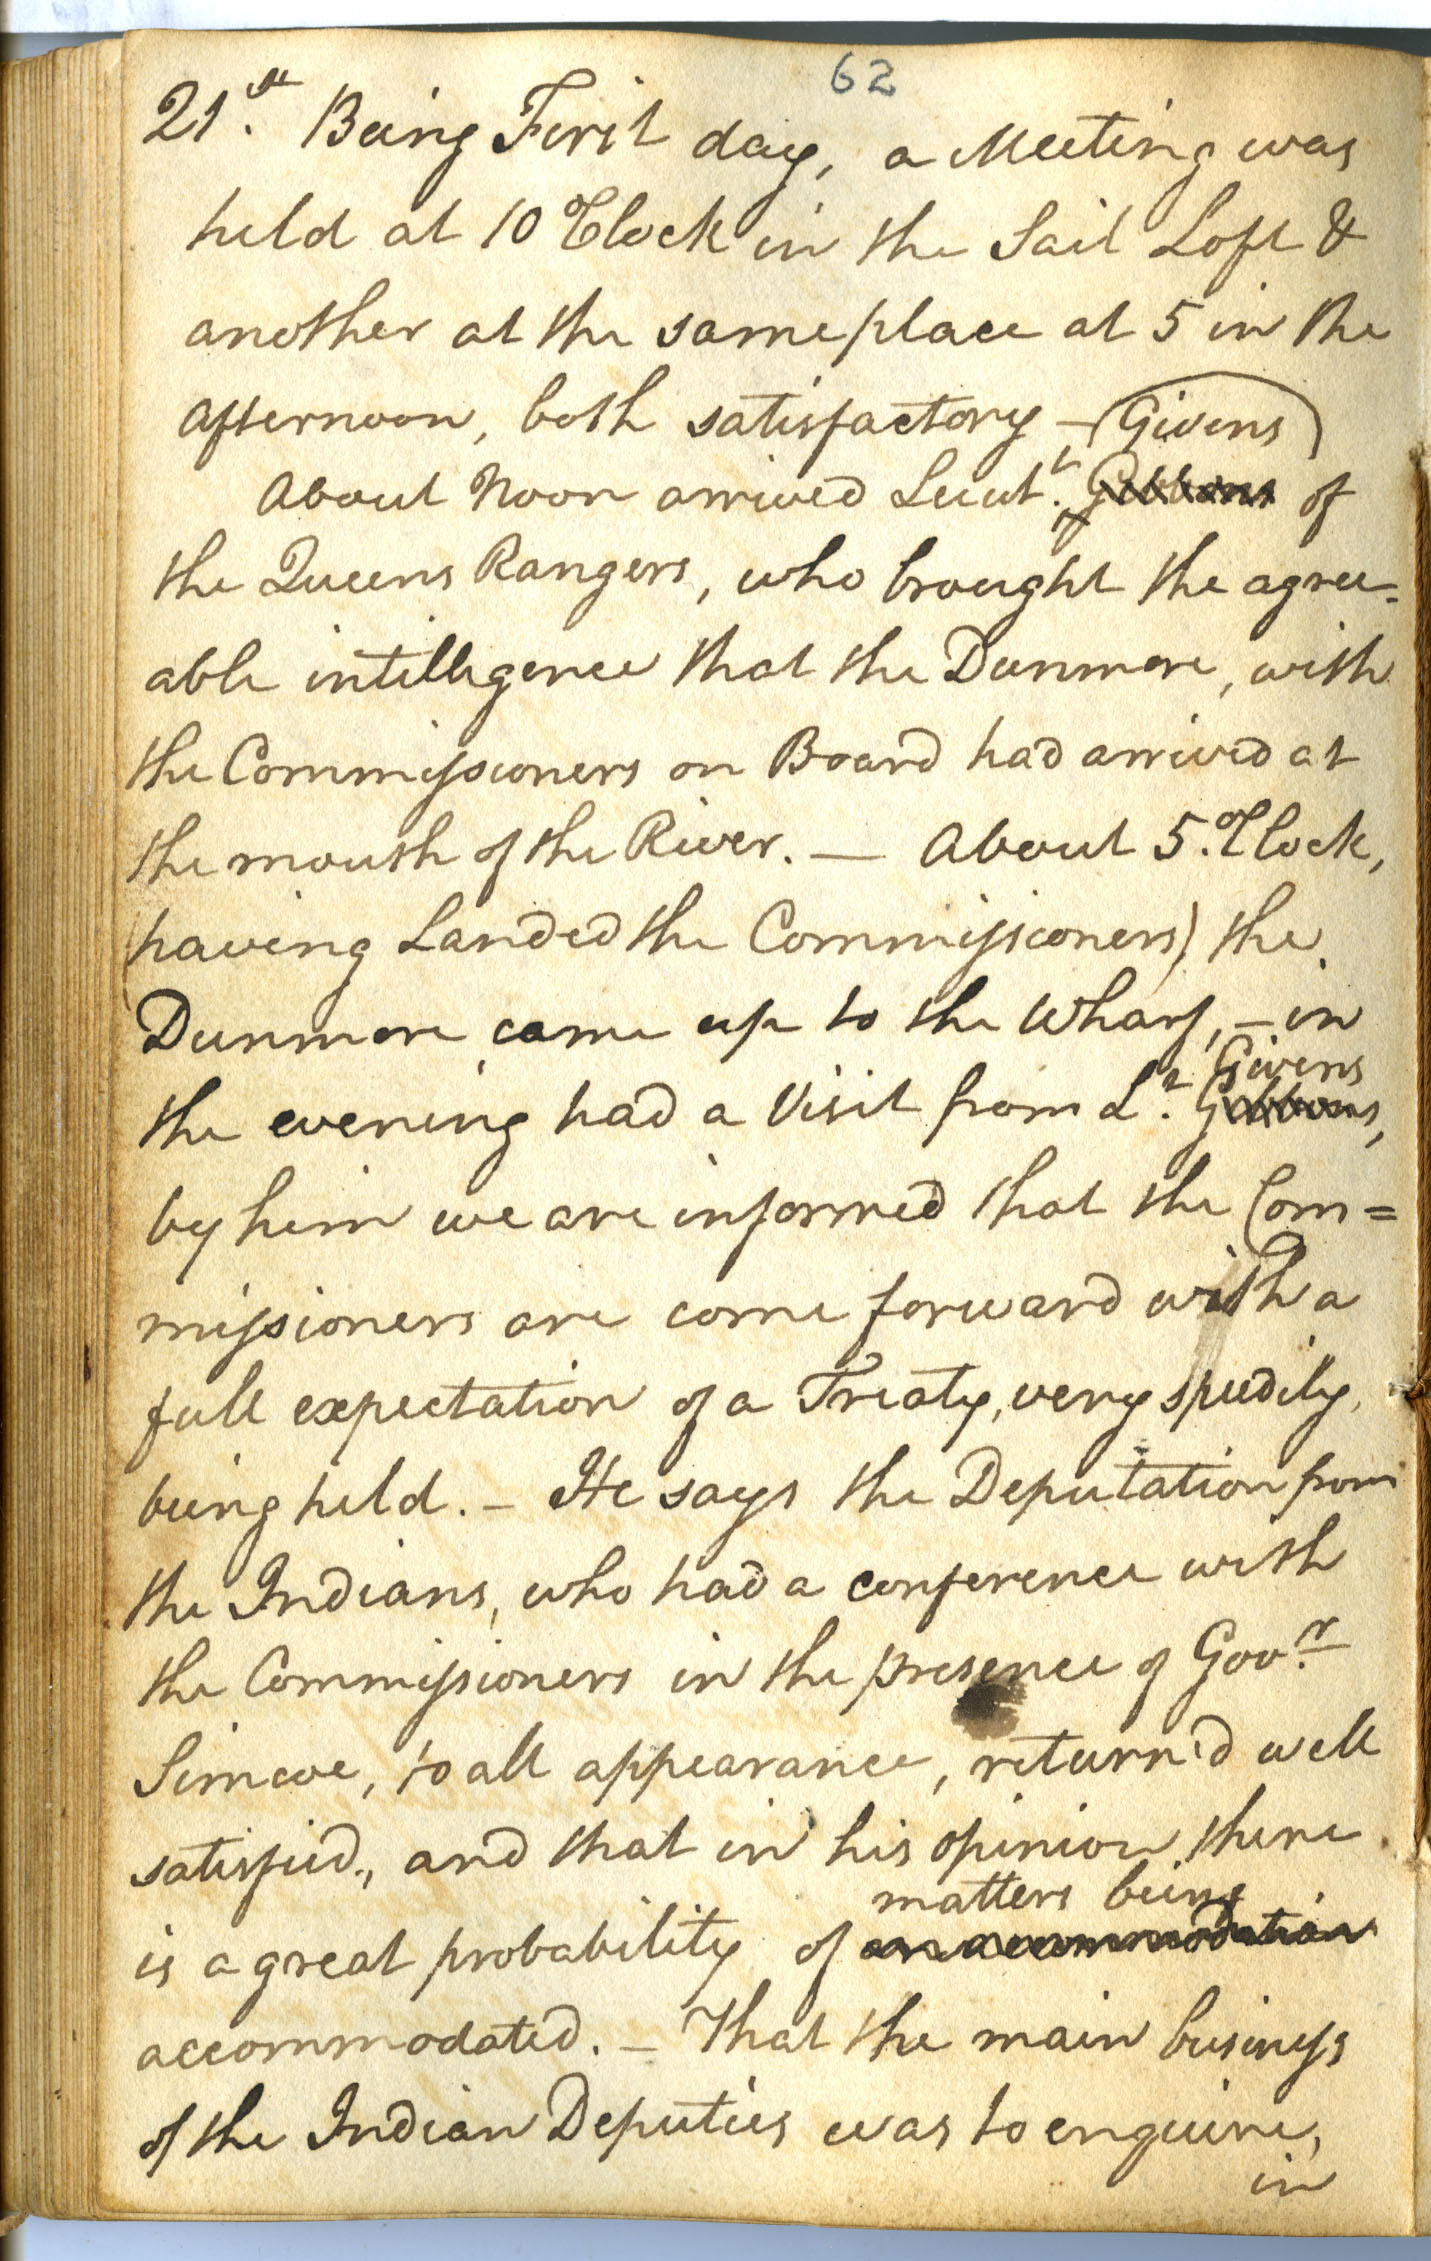 62
21st. Being First day, a Meeting was
held at 10 oClock in the Sail Loft &
another at the same place at 5 in the
afternoon, both satisfactory – (Givens)
About Noon arrived Lieut. Gibbons of
the Queens Rangers, who brought the agree-
able intelligence that the Dunmore, with
the Commissioners on Board had arrived at
the mouth of the River. — About 5. oClock,
(having Landed the Commissioners) the
Dunmore came up to the Wharf, – in
Givens
the evening had a Visit from Lt. Gibbons,
by him we are informed that the Com=
missioners are come forward with a
full expectation of a Treaty, very speedily,
being held. – He says the Deputation from
the Indians, who had a conference with
the Commissioners in the presence of Govr.
Simcoe, to all appearance, return'd well
satisfied, and that in his opinion there
matters being
is a great probability of an accommodation
accommodated. – That the main business
of the Indian Deputies was to enquire,
in